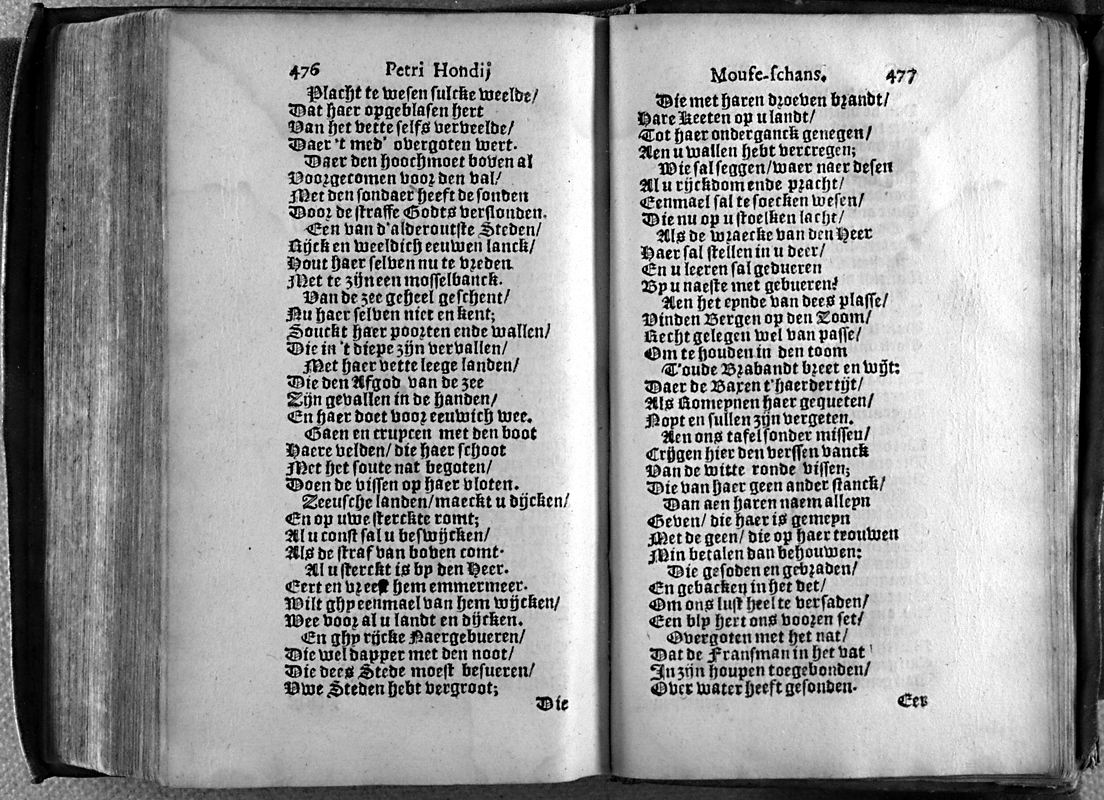 476 Petri Hondij
Placht te wesen sulcke weelde/
Dat haer opgeblasen hert
Van het vette selfs verveelde/
Daer 't med' overgoten wert.
Daer den hoochmoet boven al
Voorgecomen voor den val/
Met den sondaer heeft de sonden
Door de straffe Godts verslonden.
Een van d'alderoutste Steden/
Rijck en weeldich eeuwen lanck/
Hout haer selven nu te vreden
Met te zijn een mosselbanck.
Van de zee geheel geschent/
Nu haer selven niet en kent;
Souckt haer poorten ende wallen/
Die in 't diepe zijn vervallen/
Met haer vette leege landen/
Die den Afgod van de zee
Zijn gevallen in de handen/
En haer doet voor eeuwich wee.
Gaen en crupcen met den boot
Haere velden/ die haer schoot
Met het soute nat begoten/
Doen de vissen op haer vloten.
Zeeusche landen/ maeckt u dijcken/
En op uwe sterckte romt;
Al u const sal u beswijcken/
Als de straf van boven comt.
Al u sterckt is by den Heer.
Eert en vreest hem emmermeer.
Wilt ghy eenmael van hem wijcken/
Wee voor al u landt en dijcken.
En ghy rijcke Naergebueren/
Die wel dapper met den noot/
Die dees Stede moest besueren/
Uwe Steden hebt vergroot;
Die
Mouse-schans. 477
Die met haren droeven brandt/
Hare Keeten op u landt/
Tot haer onderganck genegen/
Aen u wallen hebt vercregen;
Wie sal seggen/ waer naer desen
Al u rijckdom ende pracht/
Eenmael sal te soecken wesen/
Die nu op u stoelken lacht/
Als de wraecke van den Heer
Haer sal stellen in u deer/
En u leeren sal gedueren
By u naeste met gebueren?
Aen het eynde van dees plasse/
Vinden Bergen op den Zoom/
Recht gelegen wel van passe/
Om te houden in den toom
T'oude Brabandt breet en wijt:
Daer de Baren t'haerder tijt/
Als Romeynen haer gequeten/
Noyt en sullen zijn vergeten.
Aen ons tafel sonder missen/
Crijgen hier den verssen vanck
Van de witte ronde vissen;
Die van haer geen ander stanck/
Dan aen haren naem alleyn
Geven/ die haer is gemeyn
Met de geen/ die op haer trouwen
Min betalen dan behouwen:
Die gesoden en gebraden/
En gebacken in het vet/
Om ons lust heel te versaden/
Een bly hert ons vooren set/
Overgoten met het nat/
Dat de Fransman in het vat
In zijn houpen toegebonden/
Over water heeft gesonden.
Een